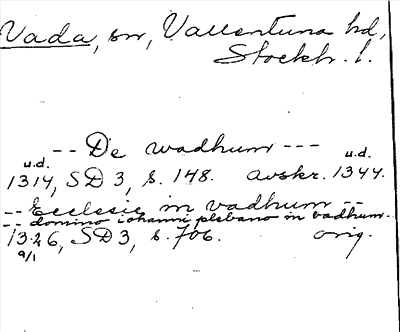 Vada, sn, Vallentuna hd,
Stockh. l.
-- De wadhum ---
u.d. u.d.
1314, SD 3, s. 148. avskr. 1344.
-- Ecclesie in vadhum --
-- domino iohanni plebano in vadhum.
1326, SD 3, s. 706. orig.
9/1